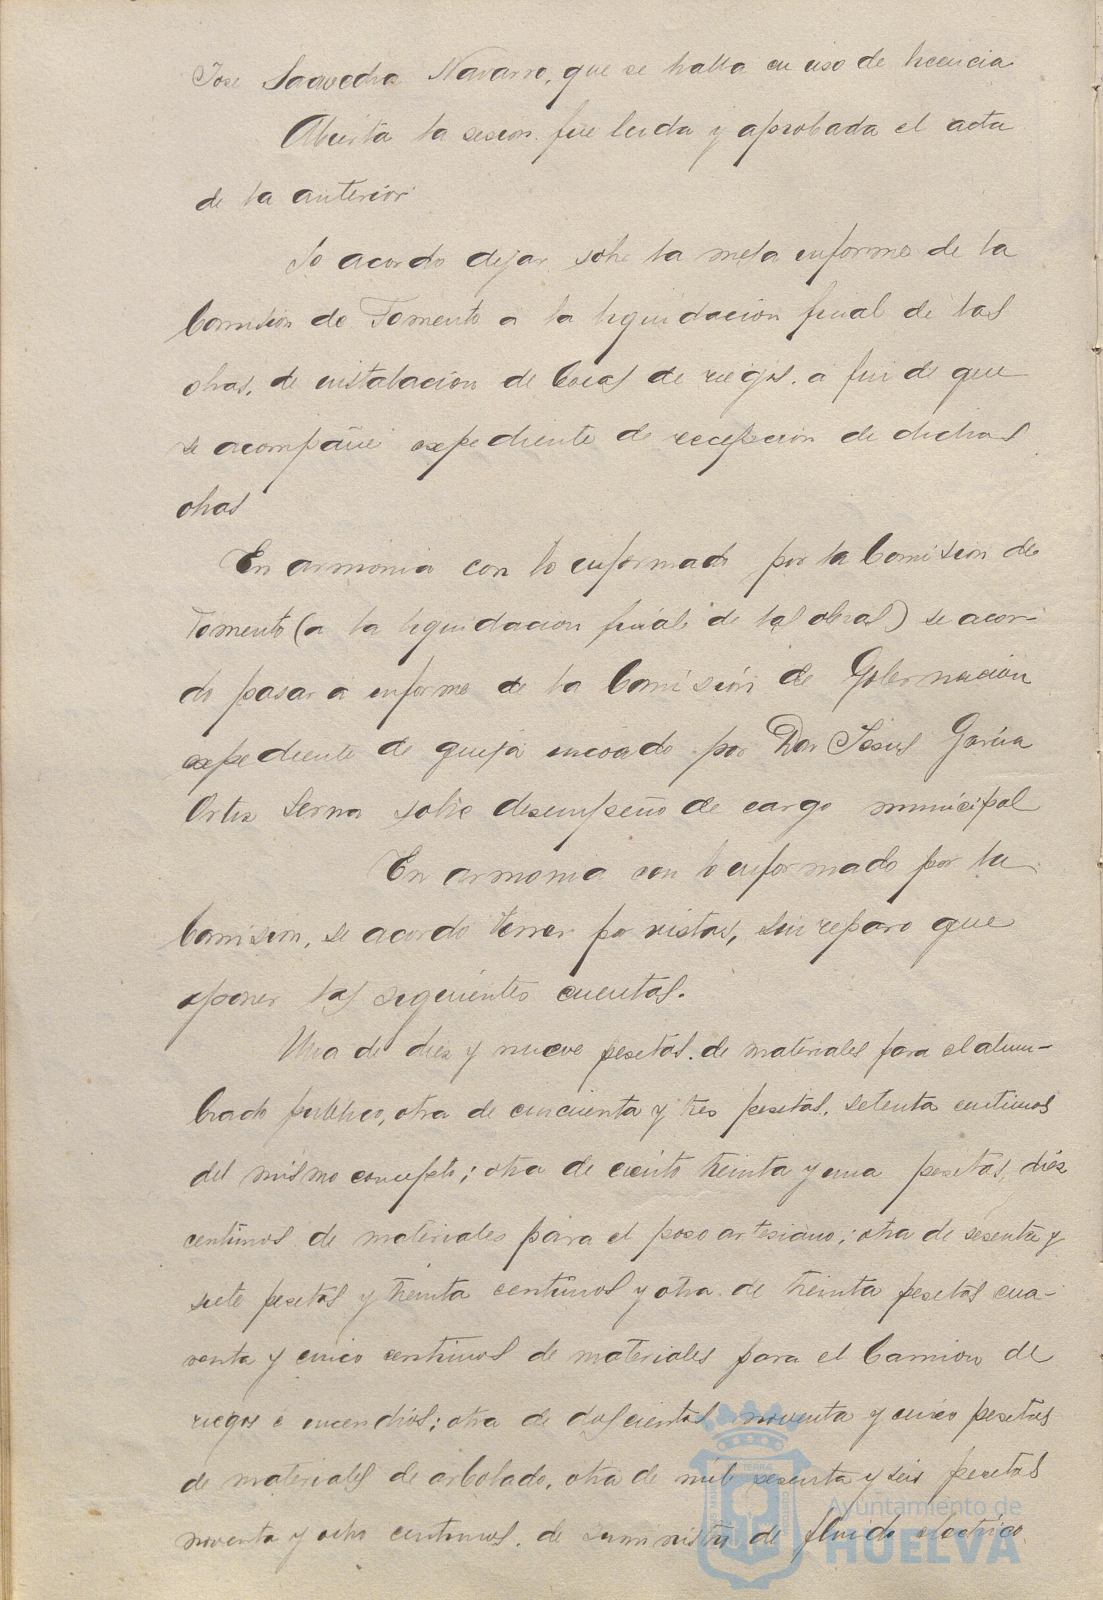 Jose Saavedra Navarro, que se halla en uso de licencia
Abierta la sesion fue leida y aprobada el acta
de la anterior
Se acordo dejar sobre la mesa informe de la
Comision de Fomento a la liquidacion final de las
obras, de instalacion de bocas de riegos. a fin de que
se acompañe expediente de recepcion de dichas
obras
En armonia con lo informado por la Comision de
Fomento (a la liquidacion final de las obras) se acor-
do pasar a informe de la Comisión de Gobernacion
expediente de queja incoado por Don Jesus Garcia
Ortiz Serna sobre desempeño de cargo municipal
En armonia con lo informado por la
Comision, se acordó tener por vistas, sin reparo que
oponer las siguientes cuentas.
Una de diez y nueve pesetas. de materiales para el alum-
brado publico, otra de cincuenta y tres pesetas, setenta centimos
del mismo concepto; otra de ciento treinta y una pesetas, diez
centimos de materiales para el poso artesiano; otra de sesenta y
siete pesetas y treinta centimos y otra de treinta pesetas cua-
renta y cinco centimos de materiales para el Camion de
riegos e incendios; otra de doscientas noventa y cinco pesetas
de materiales de arbolado, otra de mil sesenta y seis pesetas
noventa y ocho centimos. de suministro de fluido electrico
Ayuntamiento de
HUELVA